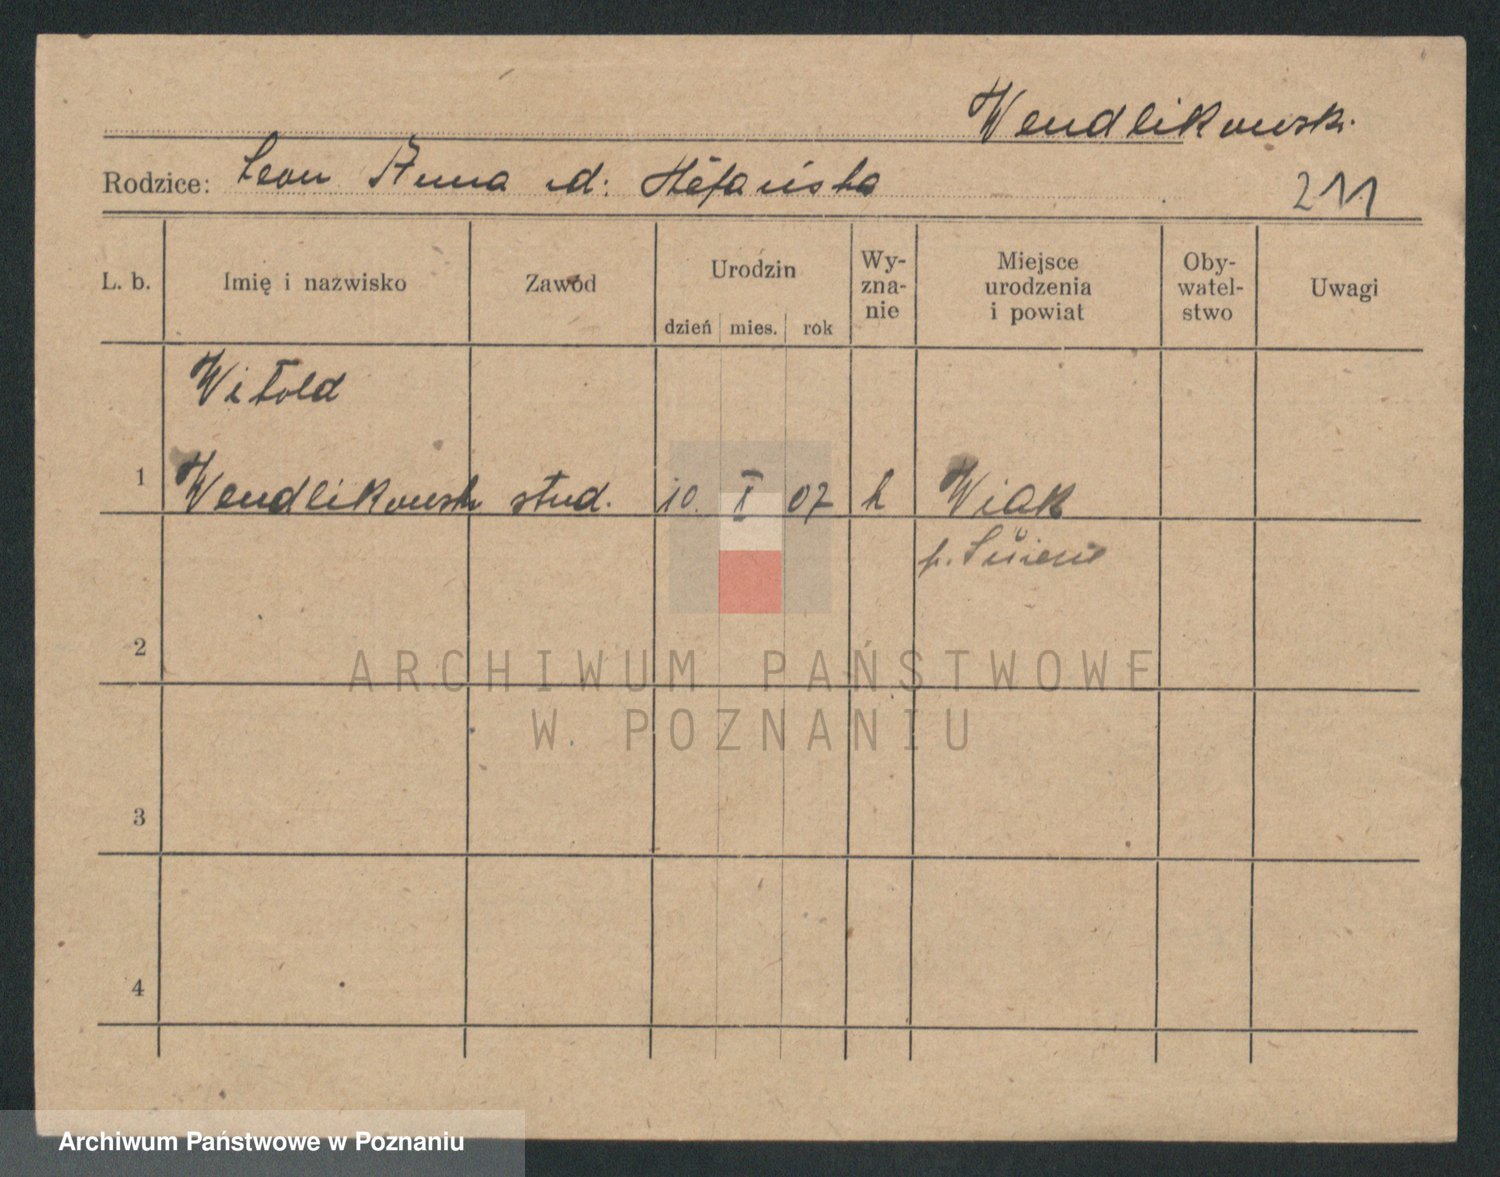 Wendlikowski
Rodzice: Leon Anna d: Stefańska
211
L. b.
Imię i nazwisko
Zawód
Urodzin
dzień mies. rok
Wy-
zna-
nie
Miejsce
urodzenia
i powiat
Oby-
watel-
stwo
Uwagi
Witold
1 Wendlikowski stud. 10. I 07 k
p.
2
3
4
ARCHIWUM PAŃSTWOWE
W POZNANIU
Archiwum Państwowe w Poznaniu